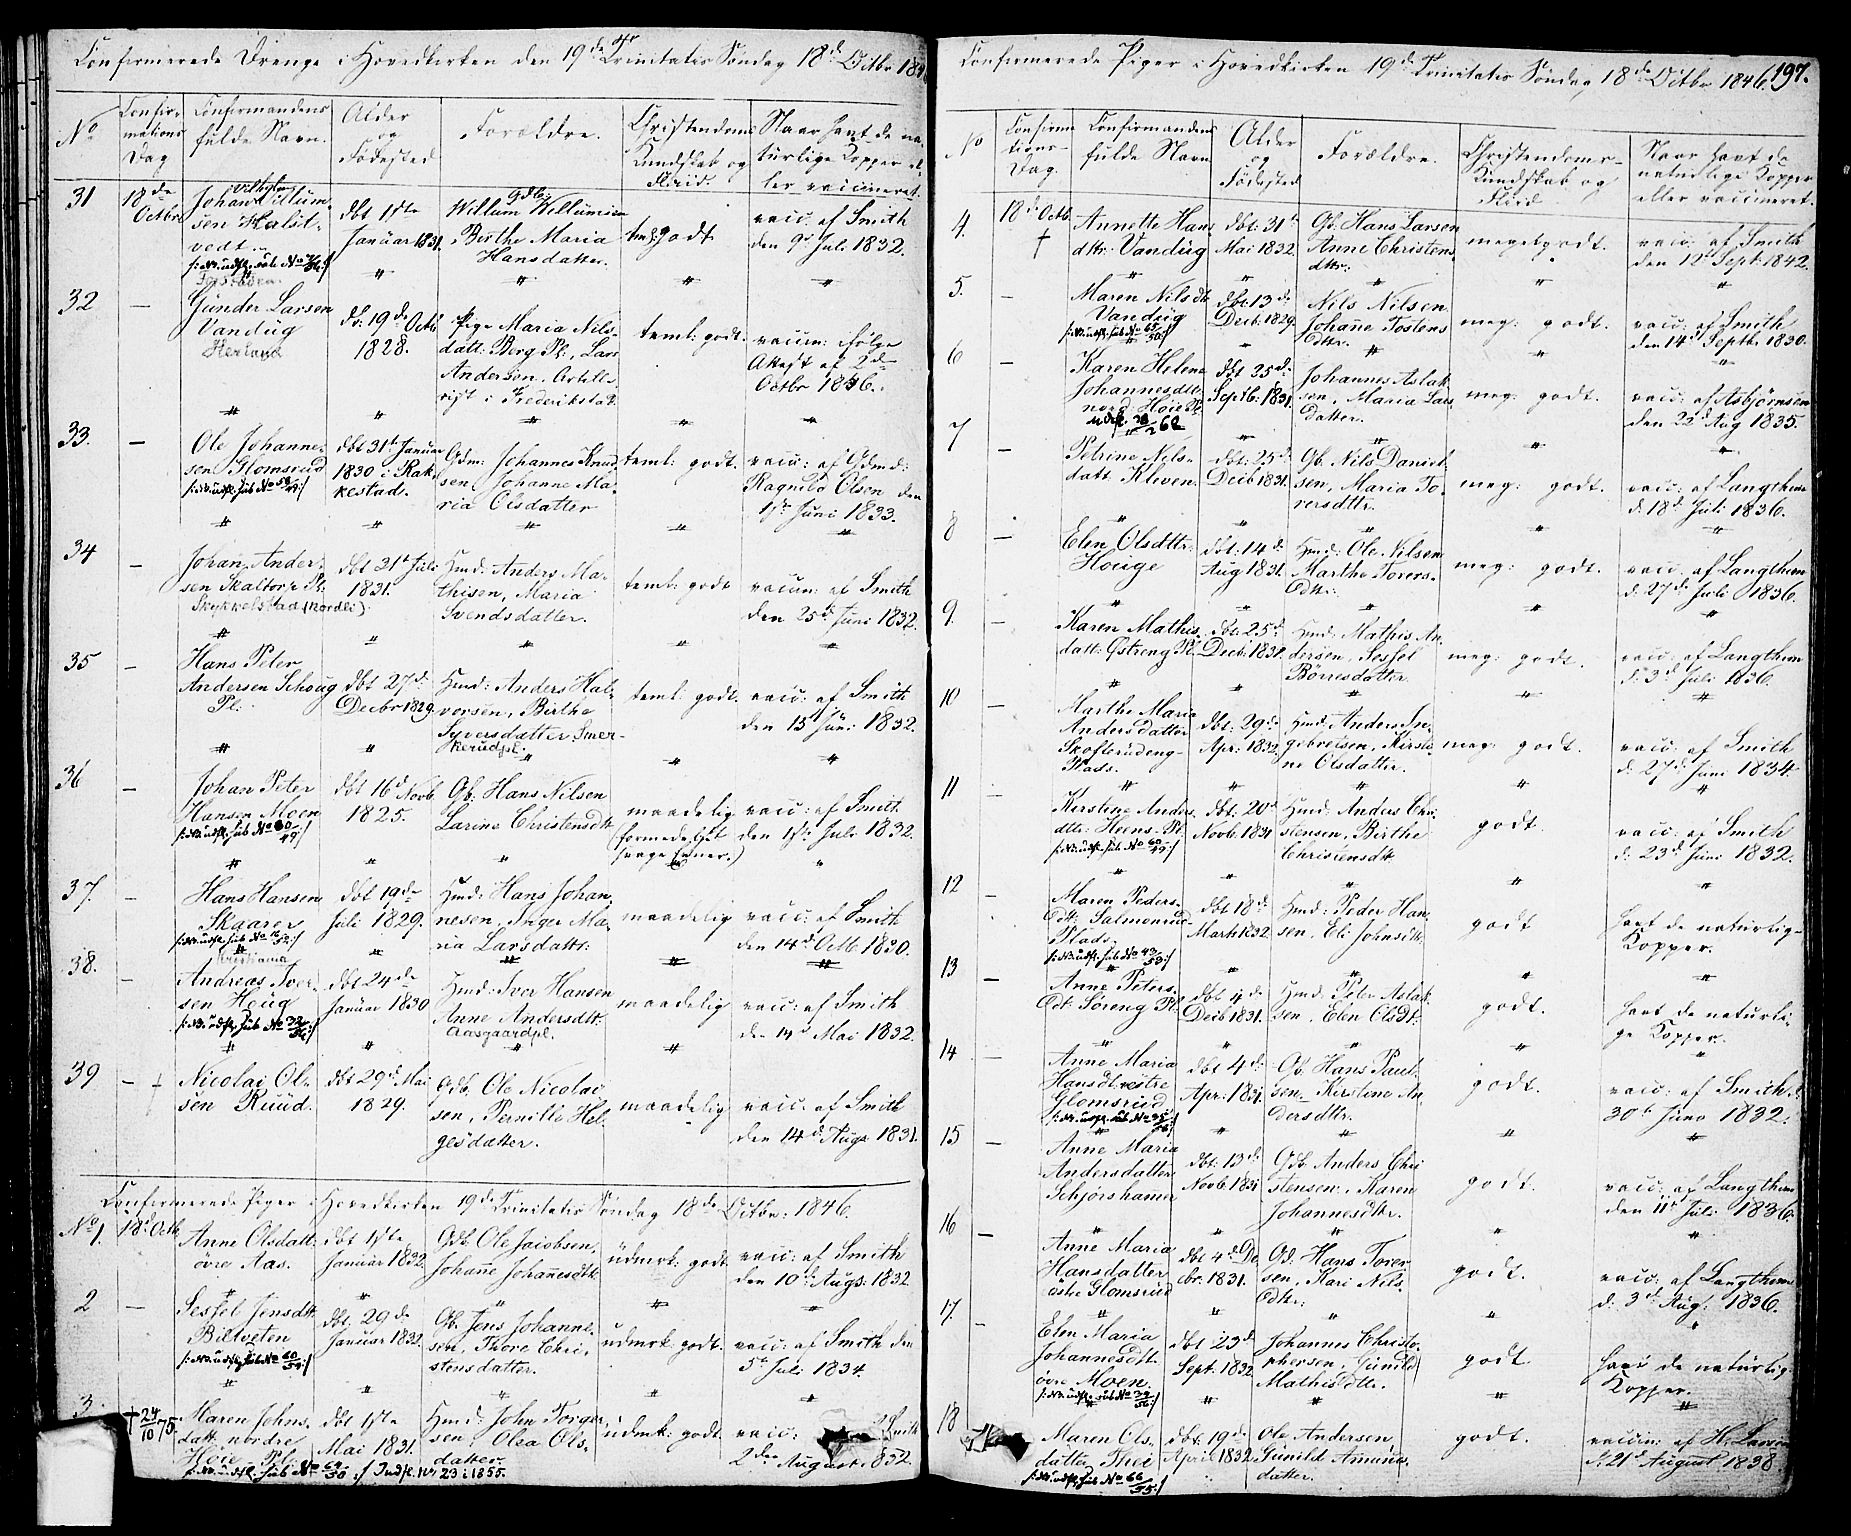 Confirmerede Drenge i Hovedkirken den 19de Sr Trinitatis Søndag 18de Octbr 184
No
Confirmations Dag
Confirmandens fulde Navn.
Alder og Fødested
Forældre.
Christendoms Kundskab og Fliid.
Naar havt de naturlige Kopper eller vaccineret.
31
18de Octbr
Johan Vilhelm Villumsen Kalst-
vedt
dbt 1ste Januar 1831.
Gdbr. Willum Willumsen
Birthe Maria Hansdatter.
tml. godt
vacc: af Smith
den 9de Juli 1832.
32
—
Günder Larsen
Vandüg
Herland
db: 19de Octb: 1828.
Pige Maria Nils-
datt: Berg Pl., Lars
Andersen, Artille-
rist i Frederikstad.
teml: godt.
vaccin: ifølge
Attest af 2de
Octbr 1846.
33.
—
Ole Johanne-
sen Glomsrud
dbt 31te Januar
1830 i Rak-
kestad.
Gdm: Johannes Knud-
sen, Johanne Ma-
ria Olsdatter
teml: godt.
vacc: af Gdmd:
Ragnild Olsen den
1ste Juni 1833.
34
—
Johan Ander-
sen Skaltorp Pl:
Skykkelstad (Nordli)
dbt 21de Juli
1831.
Hmd: Anders Ma-
thisen, Maria
Svendsdatter.
teml: godt
vaccin: af Smith
den 25de Juni 1832.
35
—
Hans Peter
Andersen Schoug
Pl:
dbt 27de
Decbr 1829
Hmd: Anders Hal-
vorsen, Birthe
Syversdatter Smer-
kerudpl.
teml: godt.
vacc: af Smith
den 15de Juni 1832.
36
—
Johan Peter
Hansen Moen
dbt 16de Novb.
1825.
Gb: Hans Nilsen
Larine Christensdtr
maadelig
(formedelst
svage Evner.)
vacc: af Smith
den 1ste Juli 1832.
37.
—
Hans Hansen
Skaarer
dbt 19de
Juli 1829.
Hmd: Hans Johan-
nesen, Inger Ma-
ria Larsdattr:
maadelig
vacc: af Smith
den 14de Octb 1830.
38.
—
Kristiania
Andreas Iver-
sen Houg
dbt 24de
Januar 1830
Hmd: Iver Hansen
Anne Andersdtr:
Aasgaardpl.
maadelig
vacc: af Smith
de Mai 1832.
39
— †
Nicolai Ol-
sen Ruud.
dbt 29de Mai
1829.
Gdb. Ole Nicolai-
sen, Pernille Hel-
gesdatter.
maadelig
vacc: af Smith
den 14de Augs 1831.
Confirmerede Piger i Hovedkirken 19de Trinitatis Søndag 18de Octbr. 1846.
No 1.
18de Octb
Anne Olsdatt:
øvre Aas.
dbt 1ste
Januar 1832.
Gdb. Ole Jacobsen,
Johane Johanesdtr
udmrk: godt
vacc: af Smith
den 10de Augs: 1832
2
—
Sessel Jensdtr.
Biltveten
dbt. 29de
Januar 1832.
Gb. Jens Johanne-
sen, Thore Chri-
stensdatter.
udmrk godt.
vacc: af Smith den
5te Juli 1834.
3.
† 24/10 75.
Maren Johns-
datt nordre
Høie Pl:
Indfl. Nr 23 i 1855.
dbt 1ste
Mai 1831.
Hmd: John Torger-
sen, Olea Ols-
datter.
udmk: godt.
vacc: Smith
2den August 1832.
Confirmerede Piger i Hovedkirken 19de Trinitatis Søndag 18de Octbr 1846. 197.
No
Confirmations-
Dag.
Confirmandens
fulde Navn
Alder
og
Fødested
Forældre.
Christendoms-
Kundskab og
Fliid
Naar havt de
naturlige Kopper
eller vaccineret.
4.
18de Octb.
†
Annette Hans
dtr: Vandüg
dbt: 31te
Mai 1832.
Gb. Hans Larsen
Anne Christens
dtr:
megetgodt.
vacc: af Smith
den 12te Sept: 1842.
5.
—
Maren Nilsdtr
Vandüg
dbt: 13de
Decb: 1829.
Nils Nilsen
Johane Tostens
dtr:
meg: godt.
vacc: af Smith
den 14de Septb. 1830.
6
—
Karen Helene
Johannesdtr
nord Høie Pl.
dbt 25de
Septb: 1831.
Johannes Aslak-
sen, Maria Lars
datter.
meg: godt.
vacc: af Asbjørnsen
den 22de Aug 1835.
7
—
Petrine Nils-
datt Kleven.
dbt: 25de
Decb 1831.
Gb. Nils Daniel-
sen, Maria To-
rersdtr.
meg: godt.
vacc: af Langthun
d: 18de Juli 1836.
8
—
Elen Olsdtr:
Houge
dbt: 14de
Aug 1831.
Hmd: Ole Nilsen
Marthe Torers-
dtr:
meg: godt.
vacc: af Langthun
d: 27de Juli 1836.
9.
—
Karen Mathis
datt: Østreng Pl.
dbt: 25de
Decb: 1831.
Hmd: Mathis An-
dersen, Sessel
Børresdatter.
meg: godt.
vacc: af Langthun
d: 3de Juli 1836.
10
—
Marthe Maria
Andersdatter
Skofterudeng-
Plads.
dbt: 29de
Apr: 1832.
Hmd: Anders In-
gebretsen, Kirsti-
ne Olsdatter.
meg: godt.
vacc: af Smith
d: 27de Juni 1834.
11
—
Kirstine Anders
dtr: Heens Pl.
dbt: 20de
Novb: 1831
Hmd: Anders Chri-
stensen, Birthe
Christensdtr
godt.
vacc: af Smith
d: 23de Juni 1832.
12
—
Maren Peders-
dtr: Salmonrud-
Plads.
dbt 18de
Marts 1832
Hmd: Peder Han-
sen, Eli Johnsdtr.
godt
havt de naturlig-
Kopper.
13
—
Anne Peters-
dtr Søreng Pl.
dbt 4de
Decb 1831.
Hmd: Peter Aslak-
sen, Elen Olsdt:
godt.
havt de naturli-
ge Kopper.
14
—
Anne Maria
Hansdtr vestre
Glomsrud
dbt 4de
Apr: 1831.
Gb. Hans Paul-
sen, Kirstine An-
dersdtr.
godt.
vacc: af Smith d.
30te Juni 1832.
15
—
Anne Maria
Andersdatter
Schjørshamer
dbt: 13de
Novb. 1831
Gdb. Anders Chri-
stensen, Karen
Johannesdtr.
godt.
vacc: af Langthun
den 11te Juli 1836.
16
—
Anne Maria
Hansdatter
østre Glomsrud
dbt 4de De-
cbr: 1831.
Gd: Hans Torer-
sen, Kari Nils-
dtr:
godt.
vacc: af Langthun
d: 3de Aug: 1836.
17.
—
Elen Maria
Johannesdtr.
øvre Moen.
dbt 23de
Sept. 1832
Johannes Christo-
phersen, Gunild
Mathisdtr.
godt.
havt de naturlig-
Kopper.
18
Maren Ols-
datter Thei
dbt: 19de
April 1832
Ole Andersen,
Gunild Amunds-
datter.
godt.
vaccin: af H. Larsen
d. 21de August 1838.